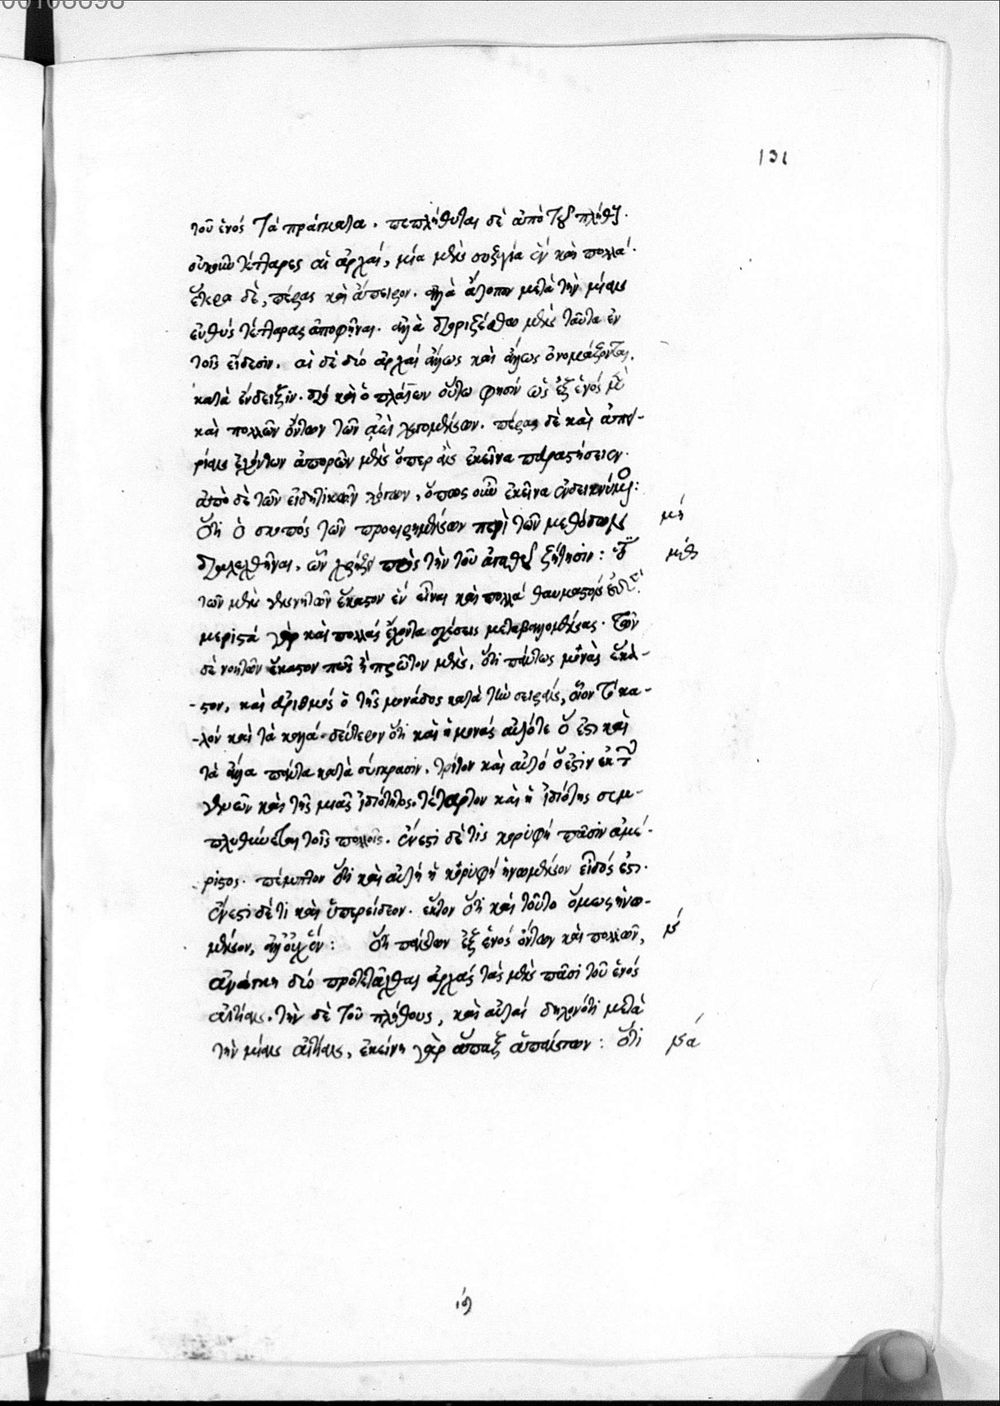 131
τοῦ ἑνός τὰ πράγματα. πεπλήθυται δὲ ἀπὸ τοῦ πλήθους.
οὐκοῦν τέτταρες αἱ ἀρχαί, μία μὲν συζυγία ἓν καὶ πολλά.
ἑτέρα δὲ, πέρας καὶ ἄπειρον. ἀλλὰ ἄτοπον μετὰ τὴν μίαν
εὐθὺς τέτταρας ἀποφῆναι. ἀλλὰ μὲν ταῦτα ἐν
τοῖς εἴδεσιν. αἱ δὲ δύο ἀρχαὶ ἄλλως καὶ ἄλλως ὀνομάζονται,
κατὰ ἔνδειξιν. διὸ καὶ ὁ πλάτων οὕτω φησίν ὡς ἐξ ἑνός μὲν
καὶ πολλῶν ὄντων τῶν ἀεὶ λεγομένων. πέρας δὲ καὶ ἀπει-
ρίαν ἐχόντων ἀπορῶν μὲν ὅπερ ἂν ἐκεῖνα παραστήσειεν.
ἀπὸ δὲ τῶν εἰδητικῶν λόγων, ὅπως οὖν ἐκεῖνα ἐνδεικνύμενος:
ὅτι ὁ σκοπός τῶν προειρημένων περὶ τῶν μεθόδων μή
διαλεχθῆναι, ὧν χρῄζει πρὸς τὴν τοῦ ἀγαθοῦ ζήτησιν: ὅτι μθ
τῶν μὲν γενητῶν ἕκαστον ἓν εἶναι καὶ πολλὰ θαυμαστόν οὐδέν.
μεριστά γὰρ καὶ πολλάς ἔχοντα σχέσεις μεταβαλλομένας. τῶν
δὲ νοητῶν ἕκαστον πῶς ἢ πρῶτον μὲν, ὅτι πάντως μονὰς ἕκα-
-στον, καὶ ἀριθμός ὁ τῆς μονάδος κατὰ τὴν σειράν, οἷον τὸ κα-
-λόν καὶ τὰ καλά. δεύτερον ὅτι καὶ ἡ μονάς αὐτό τε ὅ ἐστι καὶ
τὰ ἄλλα πάντα κατὰ σύγκρασιν. τρίτον καὶ αὐτό ὅ ἐστιν ἐκ τῶν
γενῶν καὶ τῆς μιᾶς ἰδιότητος. τέταρτον καὶ ἡ ἰδιότης συμ-
πληθύνεται τοῖς πολλοῖς. ἔνεστι δὲ τις κορυφή πᾶσιν ἀμέ-
ριστος. πέμπτον ὅτι καὶ αὐτή ἡ κορυφή ἡνωμένον εἶδός ἐστι.
ἔνεστι δέ τι καὶ ὑπερείδεον. ἕκτον ὅτι καὶ τοῦτο ὅμως ἡνω-
μένον, ἀλλ' οὐχ ἕν: ὅτι πάντων ἐξ ἑνός ὄντων καὶ πολλῶν, ν́
ἀνάγκη δύο προτετάχθαι ἀρχάς τὰς μὲν πᾶσι τοῦ ἑνός
αἰτίαν. τὴν δὲ τοῦ πλήθους, καὶ αὐταί δηλονότι μετὰ
τὴν μίαν αἰτίαν, ἐκείνη γὰρ ἅπαξ ἁπάντων: ὅτι να